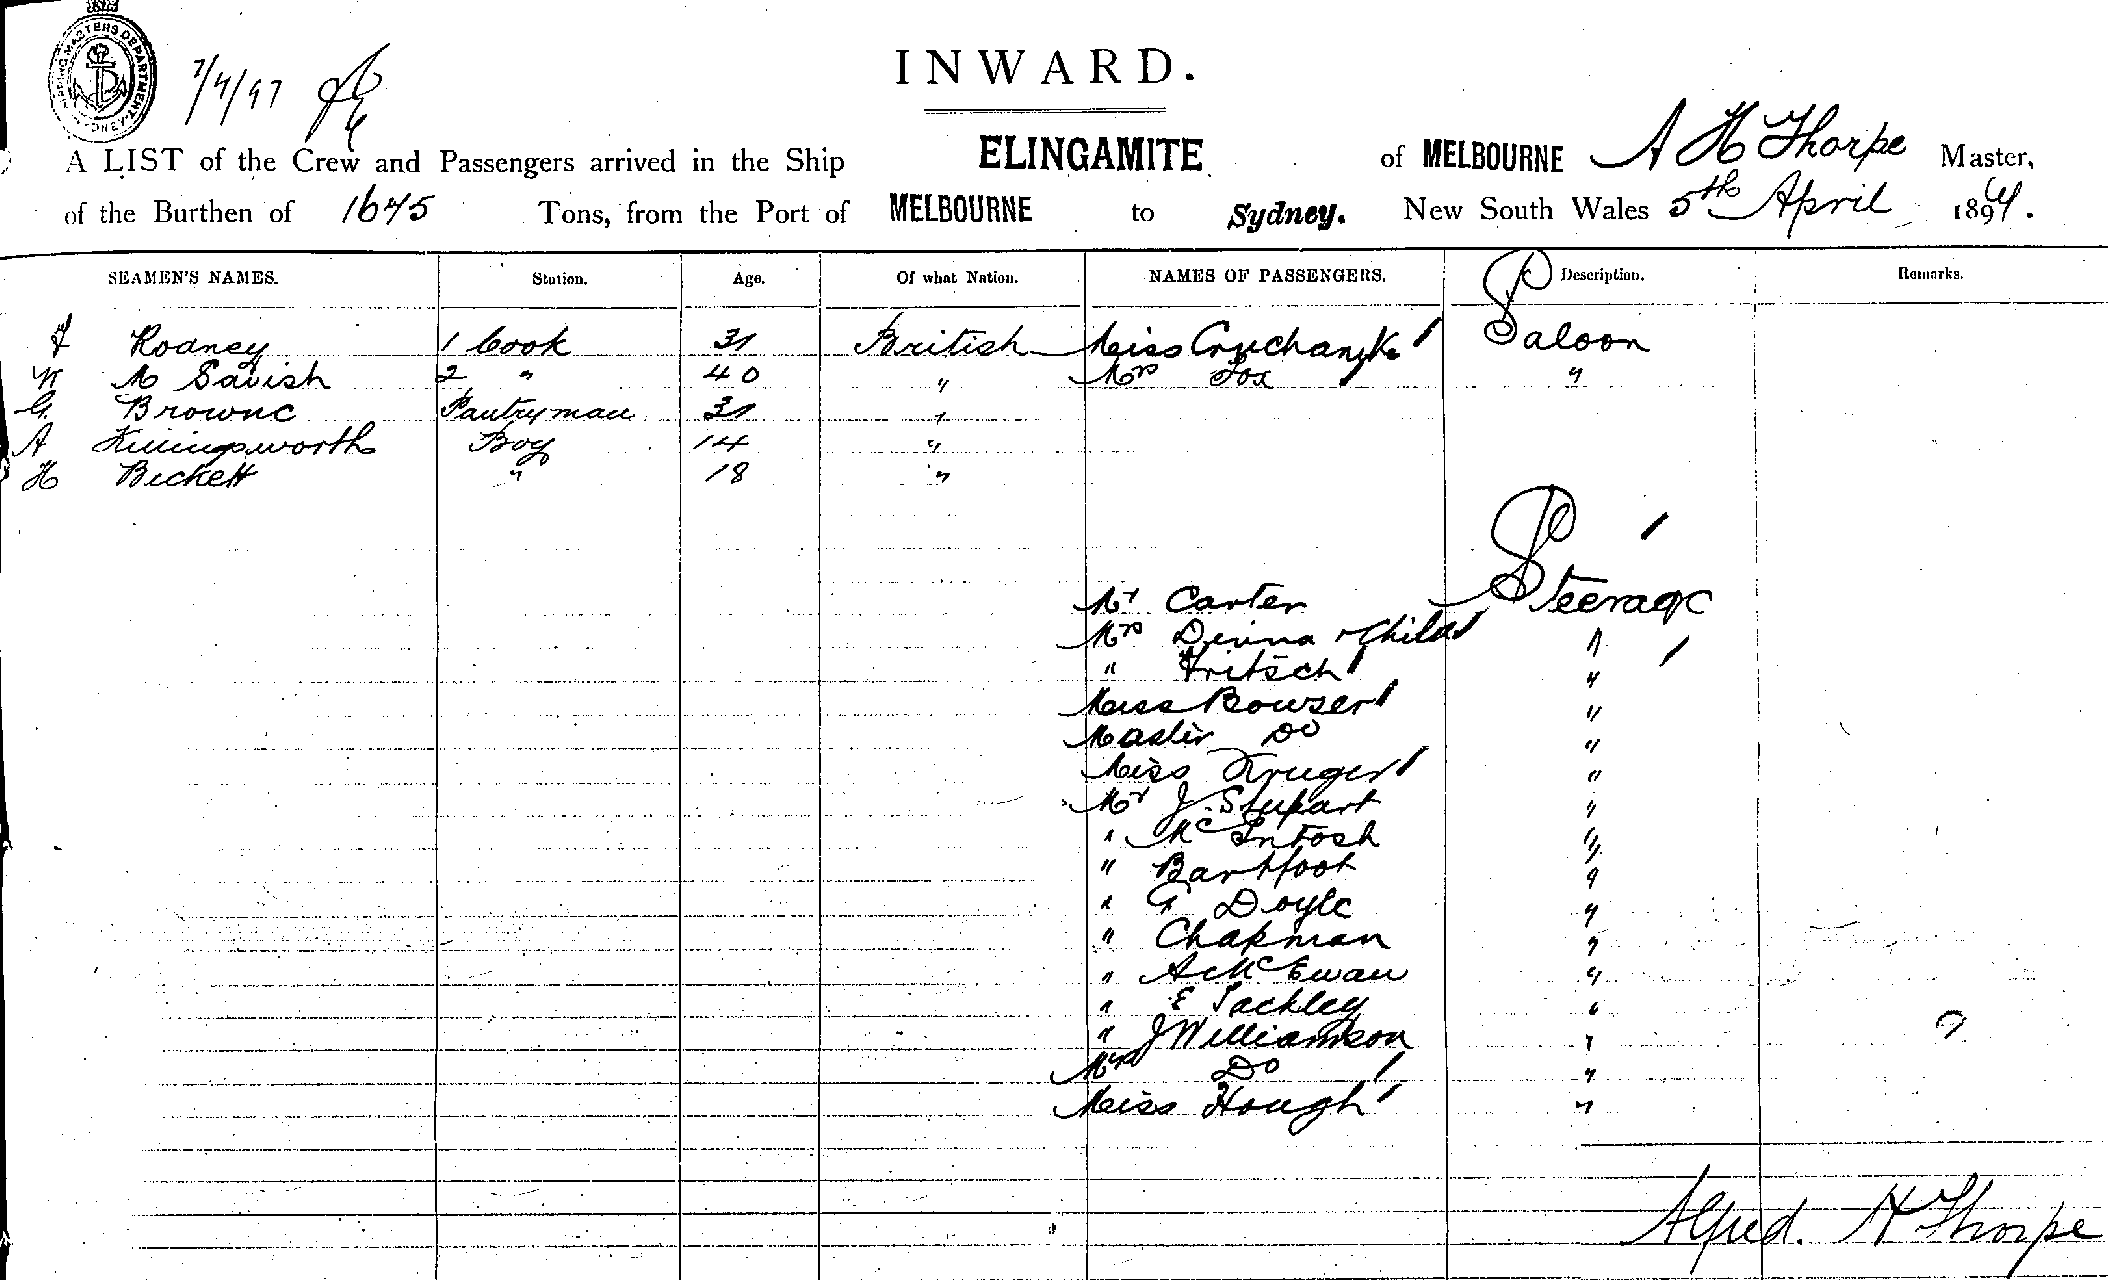 SHIPPING MASTERS DEPARTMENT SYDNEY
7/4/97
INWARD.
A LIST of the Crew and Passengers arrived in the Ship ELINGAMITE of MELBOURNE A H Thorpe Master,
of the Burthen of 1675 Tons, from the Port of MELBOURNE to Sydney. New South Wales 5th April 1897.
SEAMEN'S NAMES. Station. Age. Of what Nation. NAMES OF PASSENGERS. Description. Remarks.
Rodney 1 Cook 31 British Miss Cruchanks Saloon
Mc Savish 2 " 40 " Mrs Fox "
G. Browne Pantryman 31 "
A Killingsworth Boy 14 "
H Beckett " 18 "
Mr Carter Steerage
Mrs Denna & Child "
" Fritsch "
Miss Bowser "
Master Do "
Miss Kruger "
Mr J. Stupart "
" McIntosh "
" Bartfoot "
" G Doyle "
" Chapman "
" A McEwan "
" E Tackley "
" J Williamson "
Mrs Do "
Miss Hough "
Alfred. H Thorpe